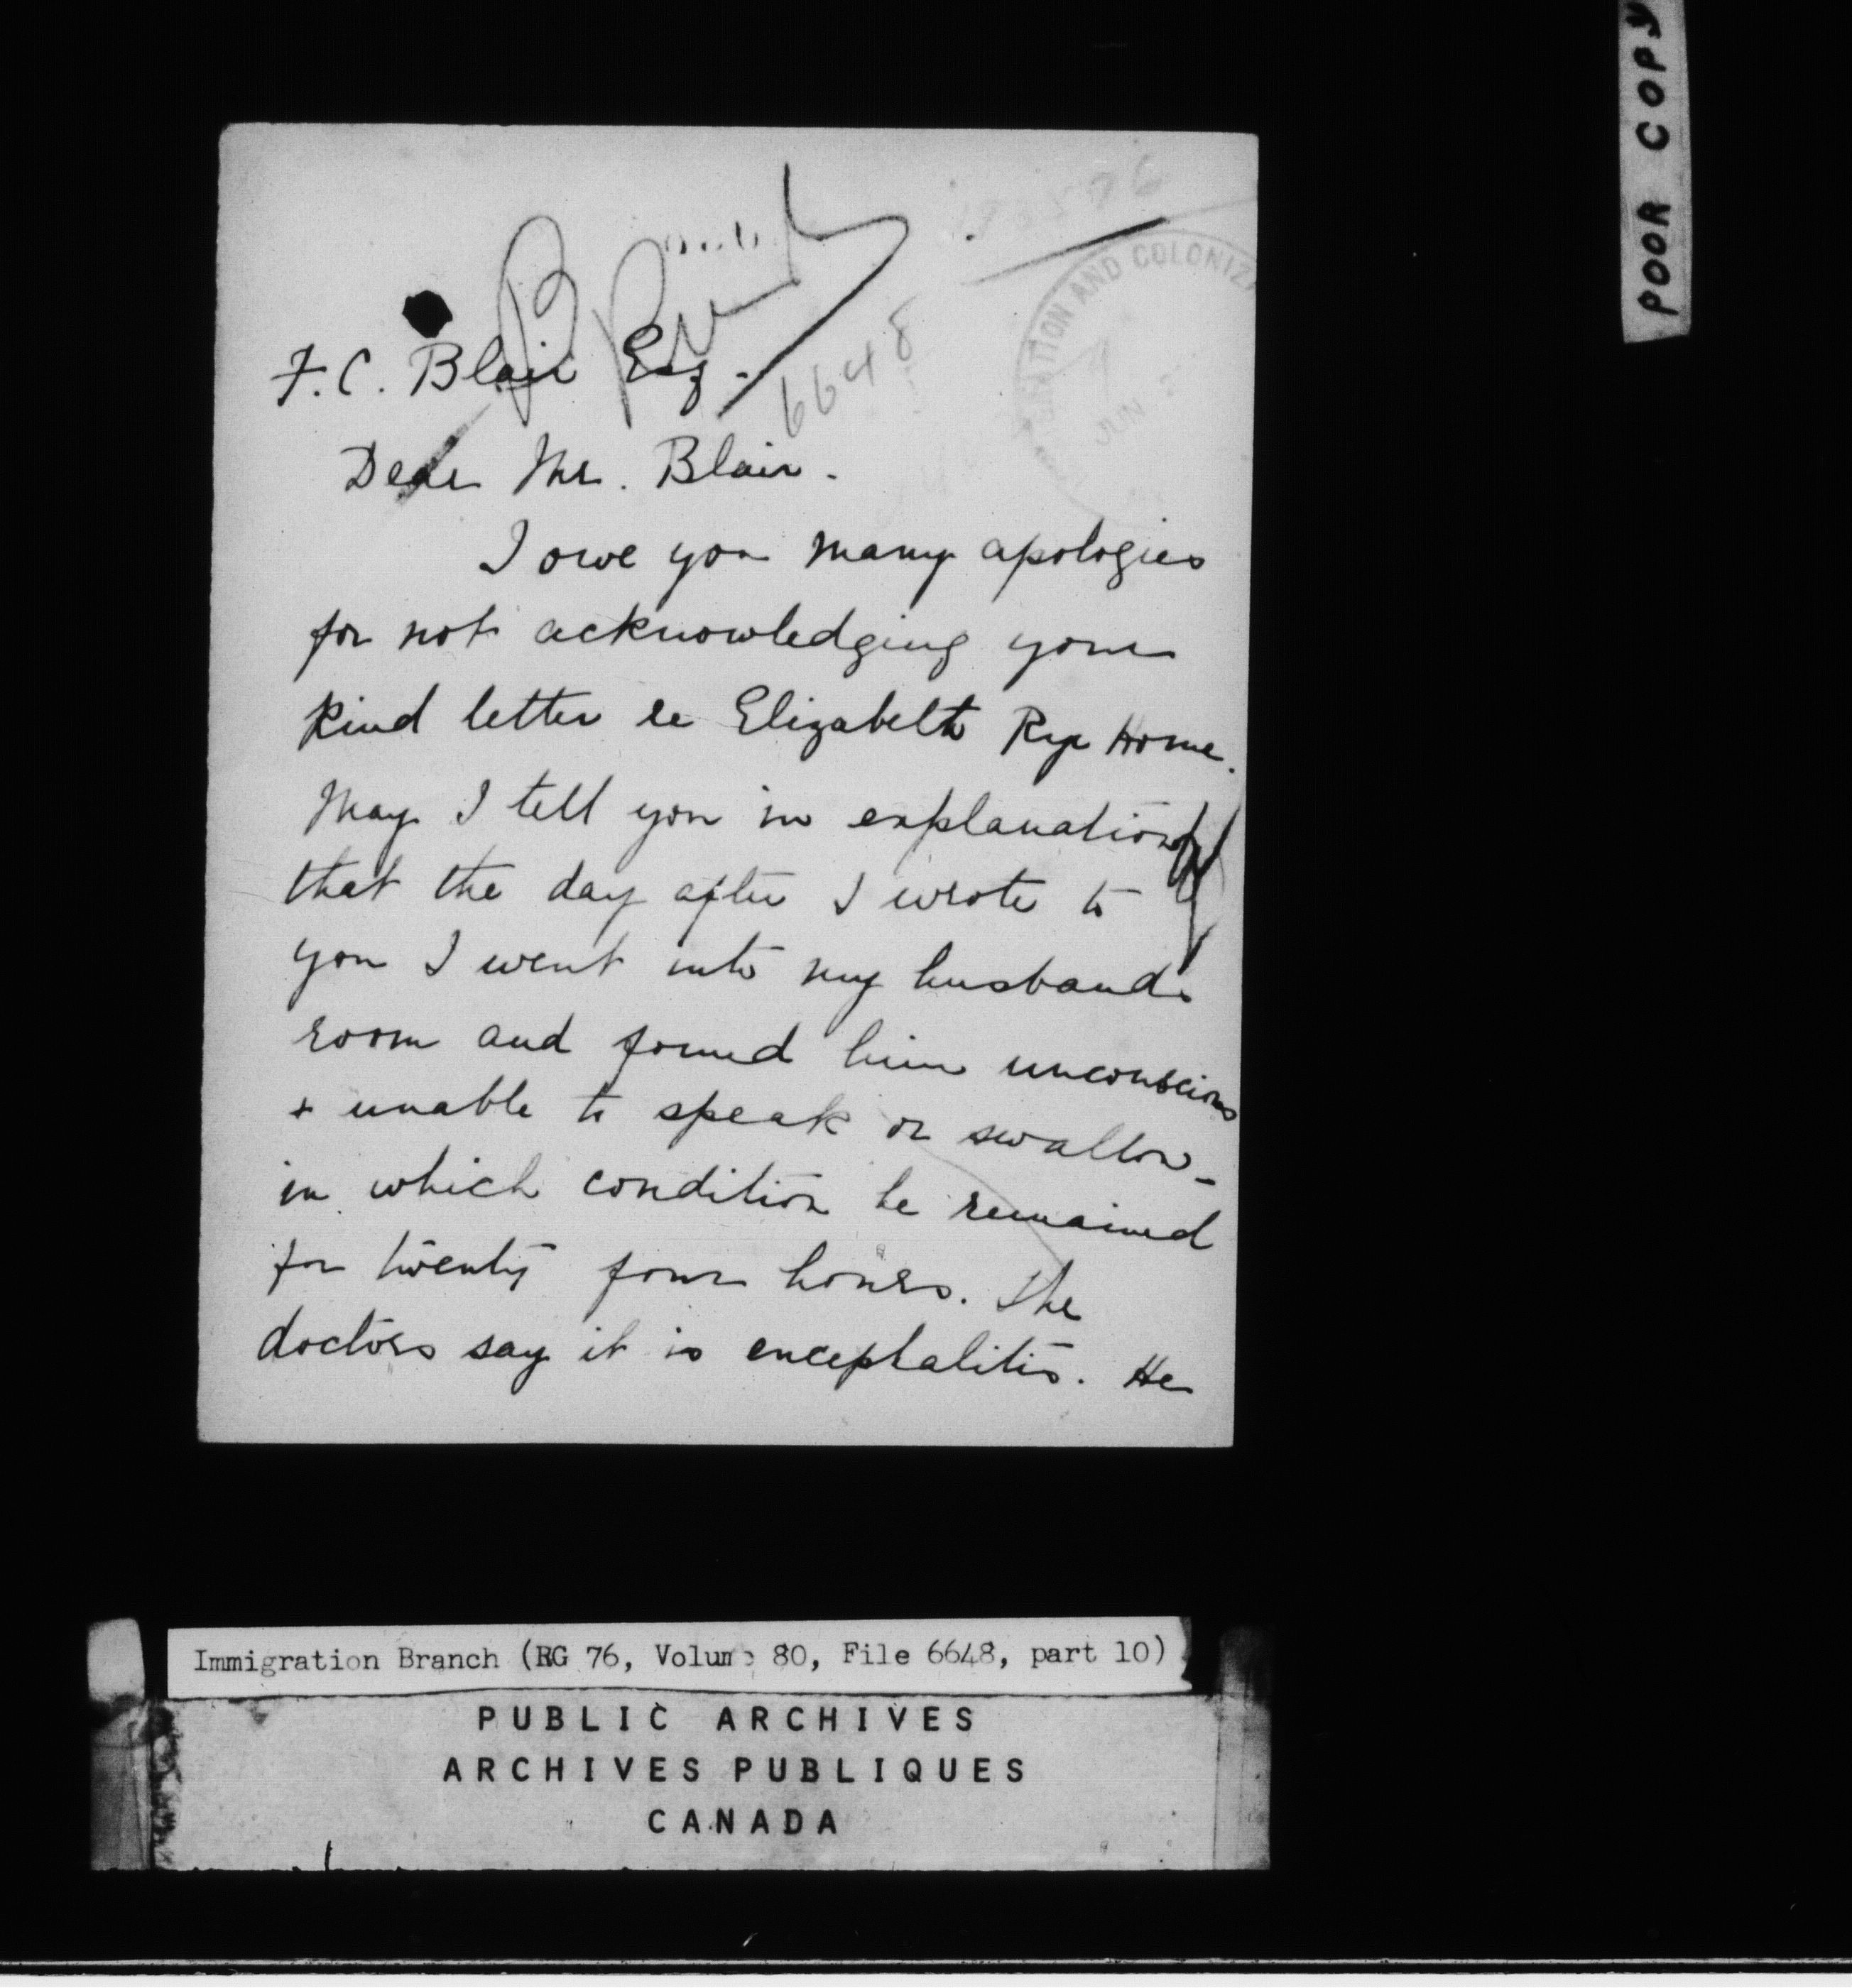 POOR COPY
6648
ATION AND COLONIZ
JUN
F. C. Blair Esq.
Dear Mr. Blair.
I owe you many apologies
for not acknowledging your
kind letter re Elizabeth Rye Home.
May I tell you in explanation
that the day after I wrote to
you I went into my husbands
room and found him unconscious
+ unable to speak or swallow -
in which condition he remained
for twenty four hours. The
doctors say it is encephalitis. He
Immigration Branch (RG 76, Volume 80, File 6648, part 10)
PUBLIC ARCHIVES
ARCHIVES PUBLIQUES
CANADA